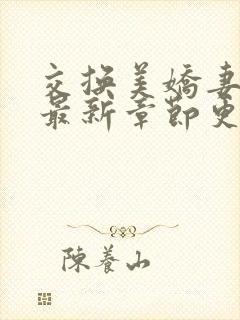 交换美嬌妻
最新章節更
陳養山